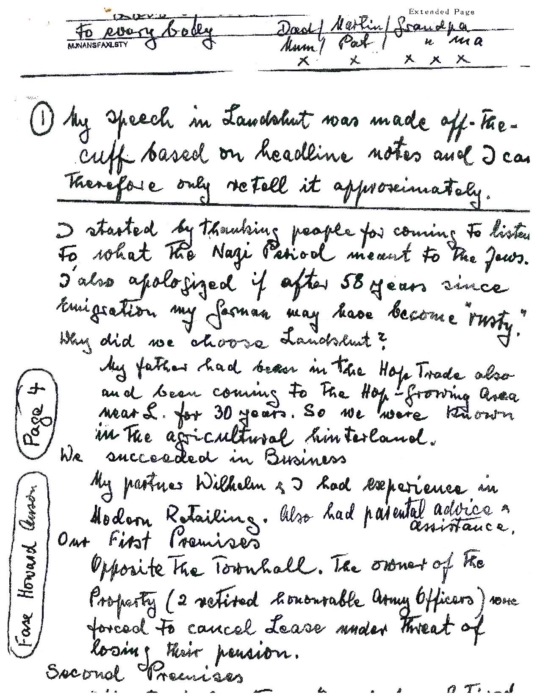 Extended Page
To every body
MJNANSFAXLSTY
Dad / Martin / Grandpa
Mum / Pat / " ma
x x x x x
① My speech in Landshut was made off-the-
cuff based on headline notes and I can
therefore only retell it approximately.
I started by thanking people for coming to listen
to what the Nazi Period meant to the Jews.
I also apologized if after 58 years since
Emigration my German may have become "rusty."
Why did we choose Landshut?
My father had been in the Hop Trade also
and been coming to the Hop-Growing Area
near L. for 30 years. So we were known
in the agricultural hinterland.
We succeeded in Business
My partner Wilhelm & I had experience in
Modern Retailing. Also had parental advice &
assistance.
Our First Premises
Opposite the Townhall. The owner of the
Property (2 retired honourable Army Officers) were
forced to cancel Lease under threat of
losing their pension.
Second Premises
Page 4
Howard